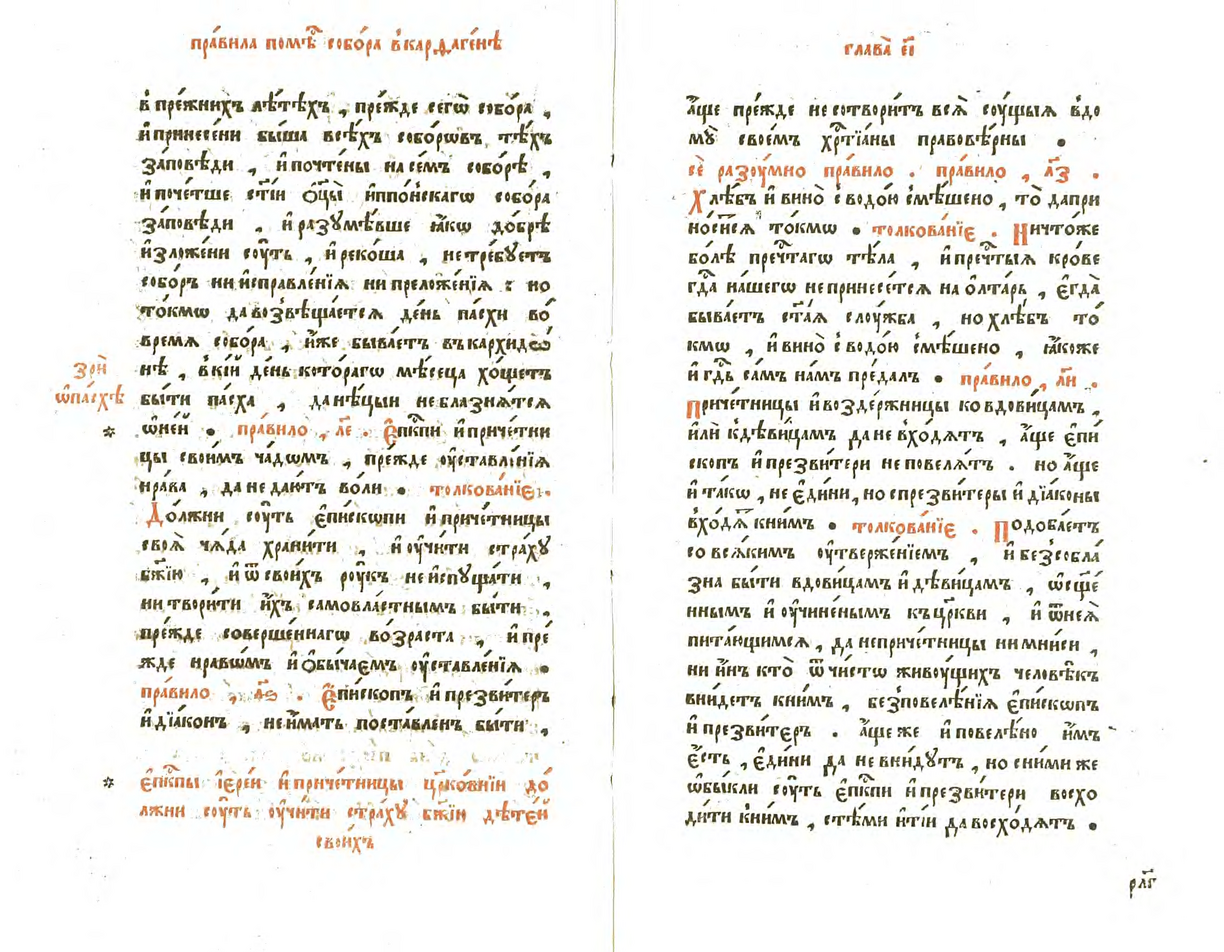 пра́вила помѣ́ⷭ҇ собо́ра в̾карѳаге́нѣ
в̾ пре́жнихъ лѣ́тѣхъ , пре́жде сегѡ̀ собо́ра ,
и҆ принесе́ни бы́ша всѣ́хъ собо́рѡвъ, тѣ́хъ
за́повѣди , и҆ почте́ны на се́мъ собо́рѣ ,
и҆ поче́тше ст҃і́и ѻ҆ц҃ы̀ и҆ппо́нскагѡ собо́ра
за́повѣди , и҆ разꙋмѣ́вше ꙗ҆́кѡ до́брѣ
и҆зло́жени сꙋ́ть , и҆ реко́ша , не тре́бꙋетъ
собо́ръ ни и҆справле́нїѧ ни преложе́нїѧ : но
то́кмѡ да возвѣща́етсѧ де́нь па́схи во́
времѧ собо́ра , и҆́же быва́етъ въ кархидо́
нѣ , в̾кі́й де́нь кото́рагѡ мѣ́сеца хо́щетъ
бы́ти па́сха , да нѣ́цыи не блазнѧ́тсѧ
зрѝ
ѡ҆ па́схѣ
* ѡ҆ не́й . пра́вило , л҃е . Е҆пⷭ҇кпи и҆ приче́тни
цы свои́мъ ча́дѡмъ , пре́жде ᲂу҆ставле́нїѧ
нра́ва , да не даю́тъ во́ли . толкова́нїе .
До́лжни сꙋ́ть є҆пи́скѡпи и҆ приче́тницы
своѧ̀ чѧ́да храни́ти , и҆ ᲂу҆чи́ти стра́хꙋ
бж҃їю , и҆ ѿ свои́хъ рꙋ́къ не и҆спꙋща́ти ,
ни твори́ти и҆́хъ самовла́стнымъ бы́ти ,
пре́жде соверше́ннагѡ во́зраста , и҆ пре́
жде нра́вѡмъ и҆ ѻ҆бы́чаемъ ᲂу҆ставле́нїѧ .
пра́вило , л҃ѕ . Е҆пи́скопъ и҆ презви́теръ
и҆ дїа́конъ , не и҆́мать поста́вленъ бы́ти ,
* є҆пⷭ҇кпы і҆ере́и и҆ приче́тницы цр҃ко́внїи до́
лжни сꙋ́ть ᲂу҆чи́ти стра́хꙋ бж҃їю дѣте́й
свои́хъ
глава̀ є҃і
а҆́ще пре́жде не сотвори́тъ всѧ̀ сꙋ́щыѧ в̾до
мꙋ̀ свое́мъ хрⷭ҇тїа́ны правовѣ́рны .
сѐ разꙋ́мно пра́вило . пра́вило , л҃з .
Хлѣ́бъ и҆ вино̀ с̾ водо́ю смѣ́шено , то̀ да при
но́ситсѧ то́кмѡ . толкова́нїе . Ничто́же
бо́лѣ прⷭ҇чтагѡ тѣ́ла , и҆ прⷭ҇чтыѧ кро́ве
гдⷭ҇а на́шегѡ не принесе́тсѧ на ѻ҆лта́рь , є҆гда̀
быва́етъ ст҃а́ѧ слꙋ́жба , но хлѣ́бъ то́
кмѡ , и҆ вино̀ с̾ водо́ю смѣ́шено , ꙗ҆́коже
и҆ гдⷭ҇ь са́мъ на́мъ пре́далъ . пра́вило , л҃и .
Приче́тницы и҆ возде́ржницы ко вдови́цамъ ,
и҆лѝ к̾дѣви́цамъ да не в̾хо́дѧтъ , а҆́ще є҆пи́
скопъ и҆ презви́тери не повелѧ́тъ . но а҆́ще
и҆ та́кѡ , не є҆ди́ни, но с презви́теры и҆ дїа́коны
в̾хо́дѧⷮ к̾ни́мъ . толкова́нїе . Подоба́етъ
со всѧ́кимъ ᲂу҆тверже́нїемъ , и҆ без̾собла́
зна бы́ти вдови́цамъ и҆ дѣви́цамъ , ѡ҆сще́
ннымъ и҆ ᲂу҆чине́нымъ къ цр҃кви , и҆ ѿ неѧ̀
пита́ющимсѧ , да не приче́тницы ни мни́си ,
ни и҆́нъ кто̀ ѿ чи́стѡ живꙋ́щихъ человѣ́къ
вни́детъ к̾ни́мъ , без̾повелѣ́нїѧ є҆пи́скѡпъ
и҆ презви́теръ . а҆́ще же и҆ повелѣ́но и҆́мъ
є҆́сть , є҆ди́ни да не вни́дꙋтъ , но с ни́ми же
ѡ҆бы́кли сꙋ́ть є҆пⷭ҇кпи и҆ презви́тери восхо
ди́ти к̾ни́мъ , с тѣ́ми и҆ ті́и да восхо́дѧтъ .
рл҃г